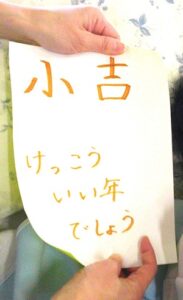 小吉
けっこう
いい年
でしょう